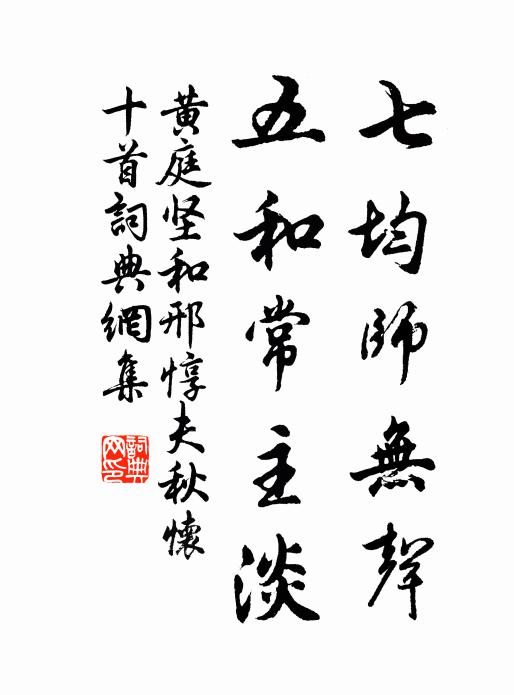 七均師無聲
五和常主淡
黄庭坚和邢惇夫秋懷
十首詞典網集
詞典
网印